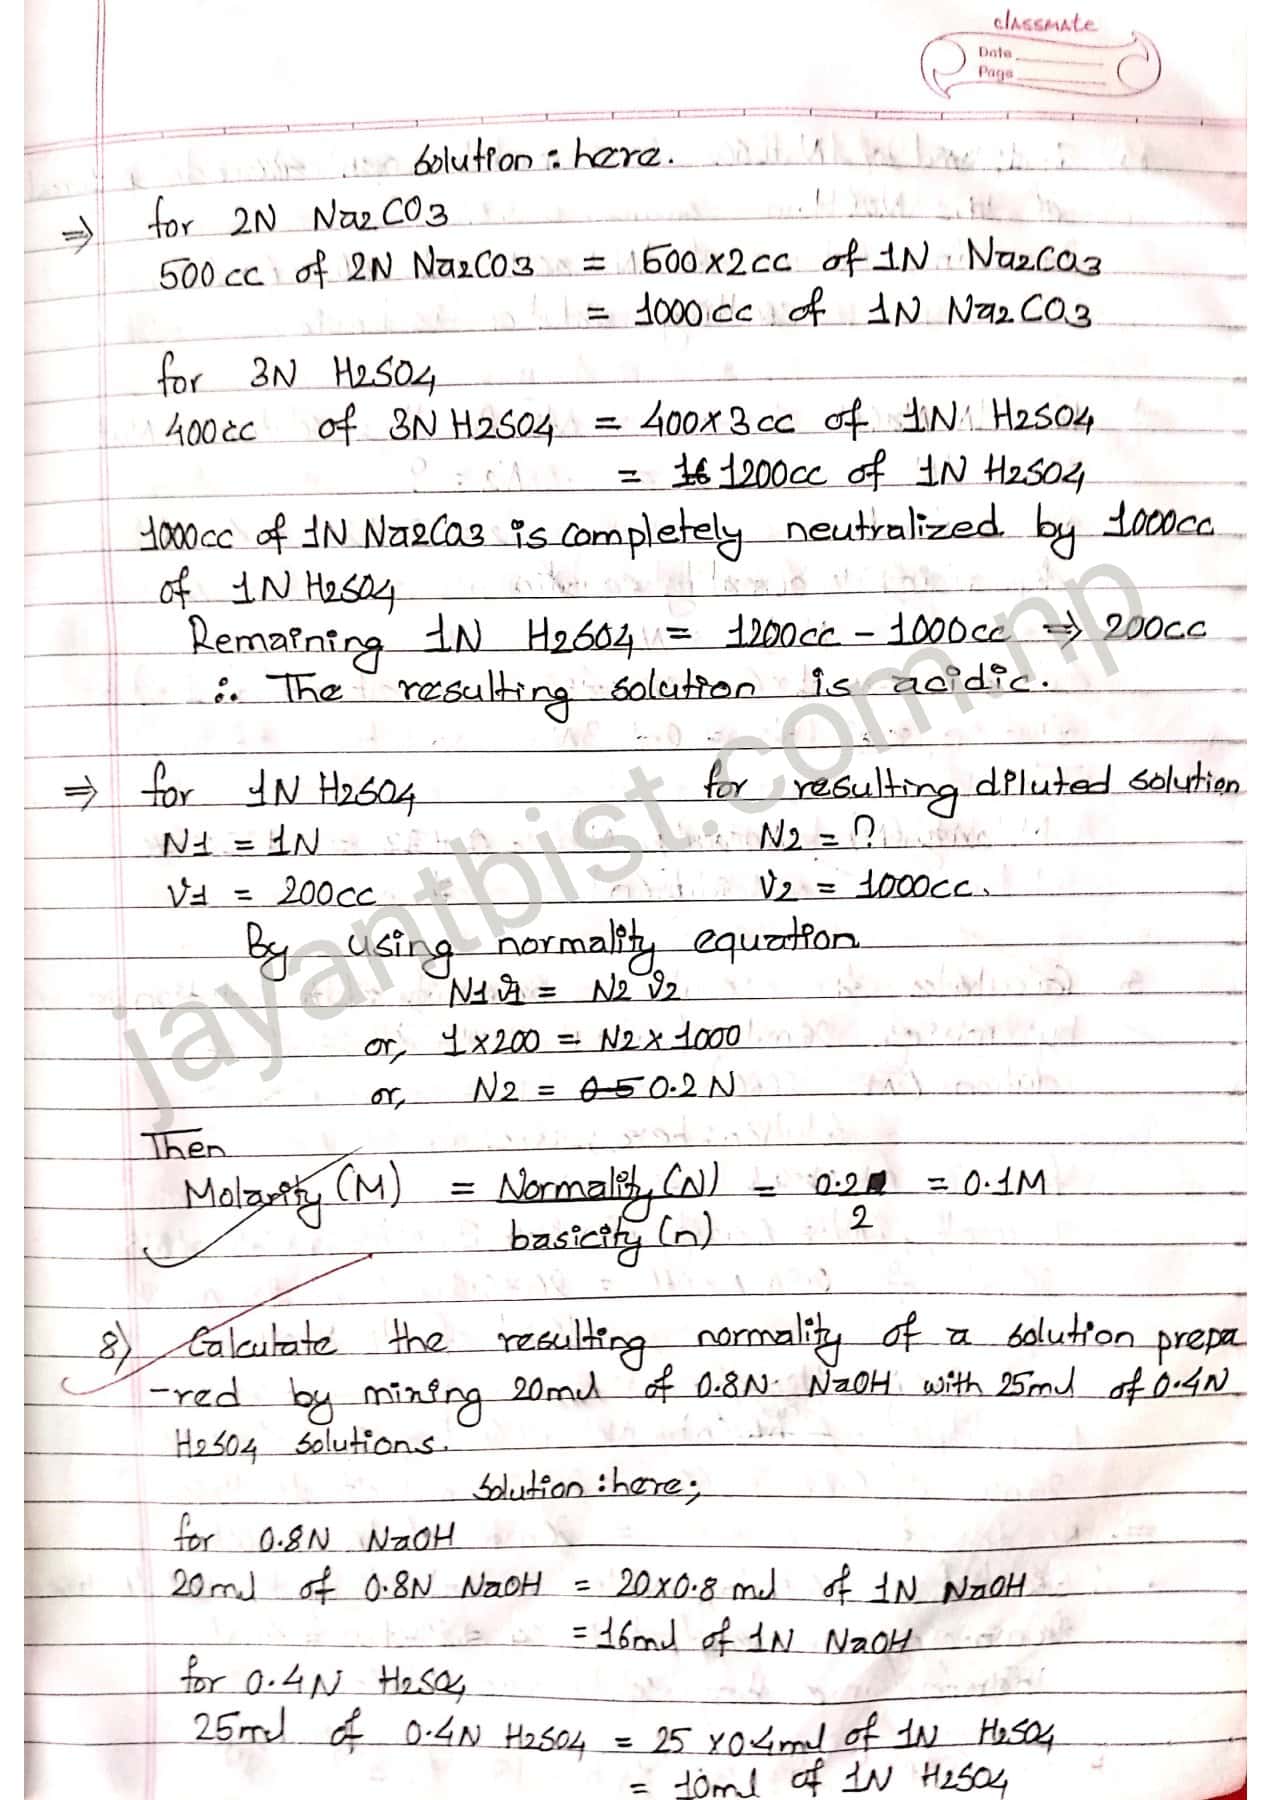 classmate
Date
Page
Solution: here.
⇒ for 2N Na2CO3
500cc of 2N Na2CO3 = 500×2cc of 1N Na2CO3
= 1000cc of 1N Na2CO3
for 3N H2SO4
400cc of 3N H2SO4 = 400×3cc of 1N H2SO4
= 1200cc of 1N H2SO4
1000cc of 1N Na2CO3 is completely neutralized by 1000cc
of 1N H2SO4
Remaining 1N H2SO4 = 1200cc - 1000cc ⇒ 200cc
∴ The resulting solution is acidic.
⇒ for 1N H2SO4 for resulting diluted solution
N1 = 1N N2 = ?
V1 = 200cc V2 = 1000cc.
By using normality equation
N1V1 = N2V2
or, 1×200 = N2×1000
or, N2 = 0.5 0.2N
Then
Molarity (M) = Normality (N) / basicity (n) = 0.2 / 2 = 0.1M
8) Calculate the resulting normality of a solution prepa
-red by mining 20ml of 0.8N NaOH with 25ml of 0.4N
H2SO4 solutions.
Solution: here;
for 0.8N NaOH
20ml of 0.8N NaOH = 20×0.8 ml of 1N NaOH
= 16ml of 1N NaOH
for 0.4N H2SO4
25ml of 0.4N H2SO4 = 25×0.4ml of 1N H2SO4
= 10ml of 1N H2SO4
jayantbist.com.np